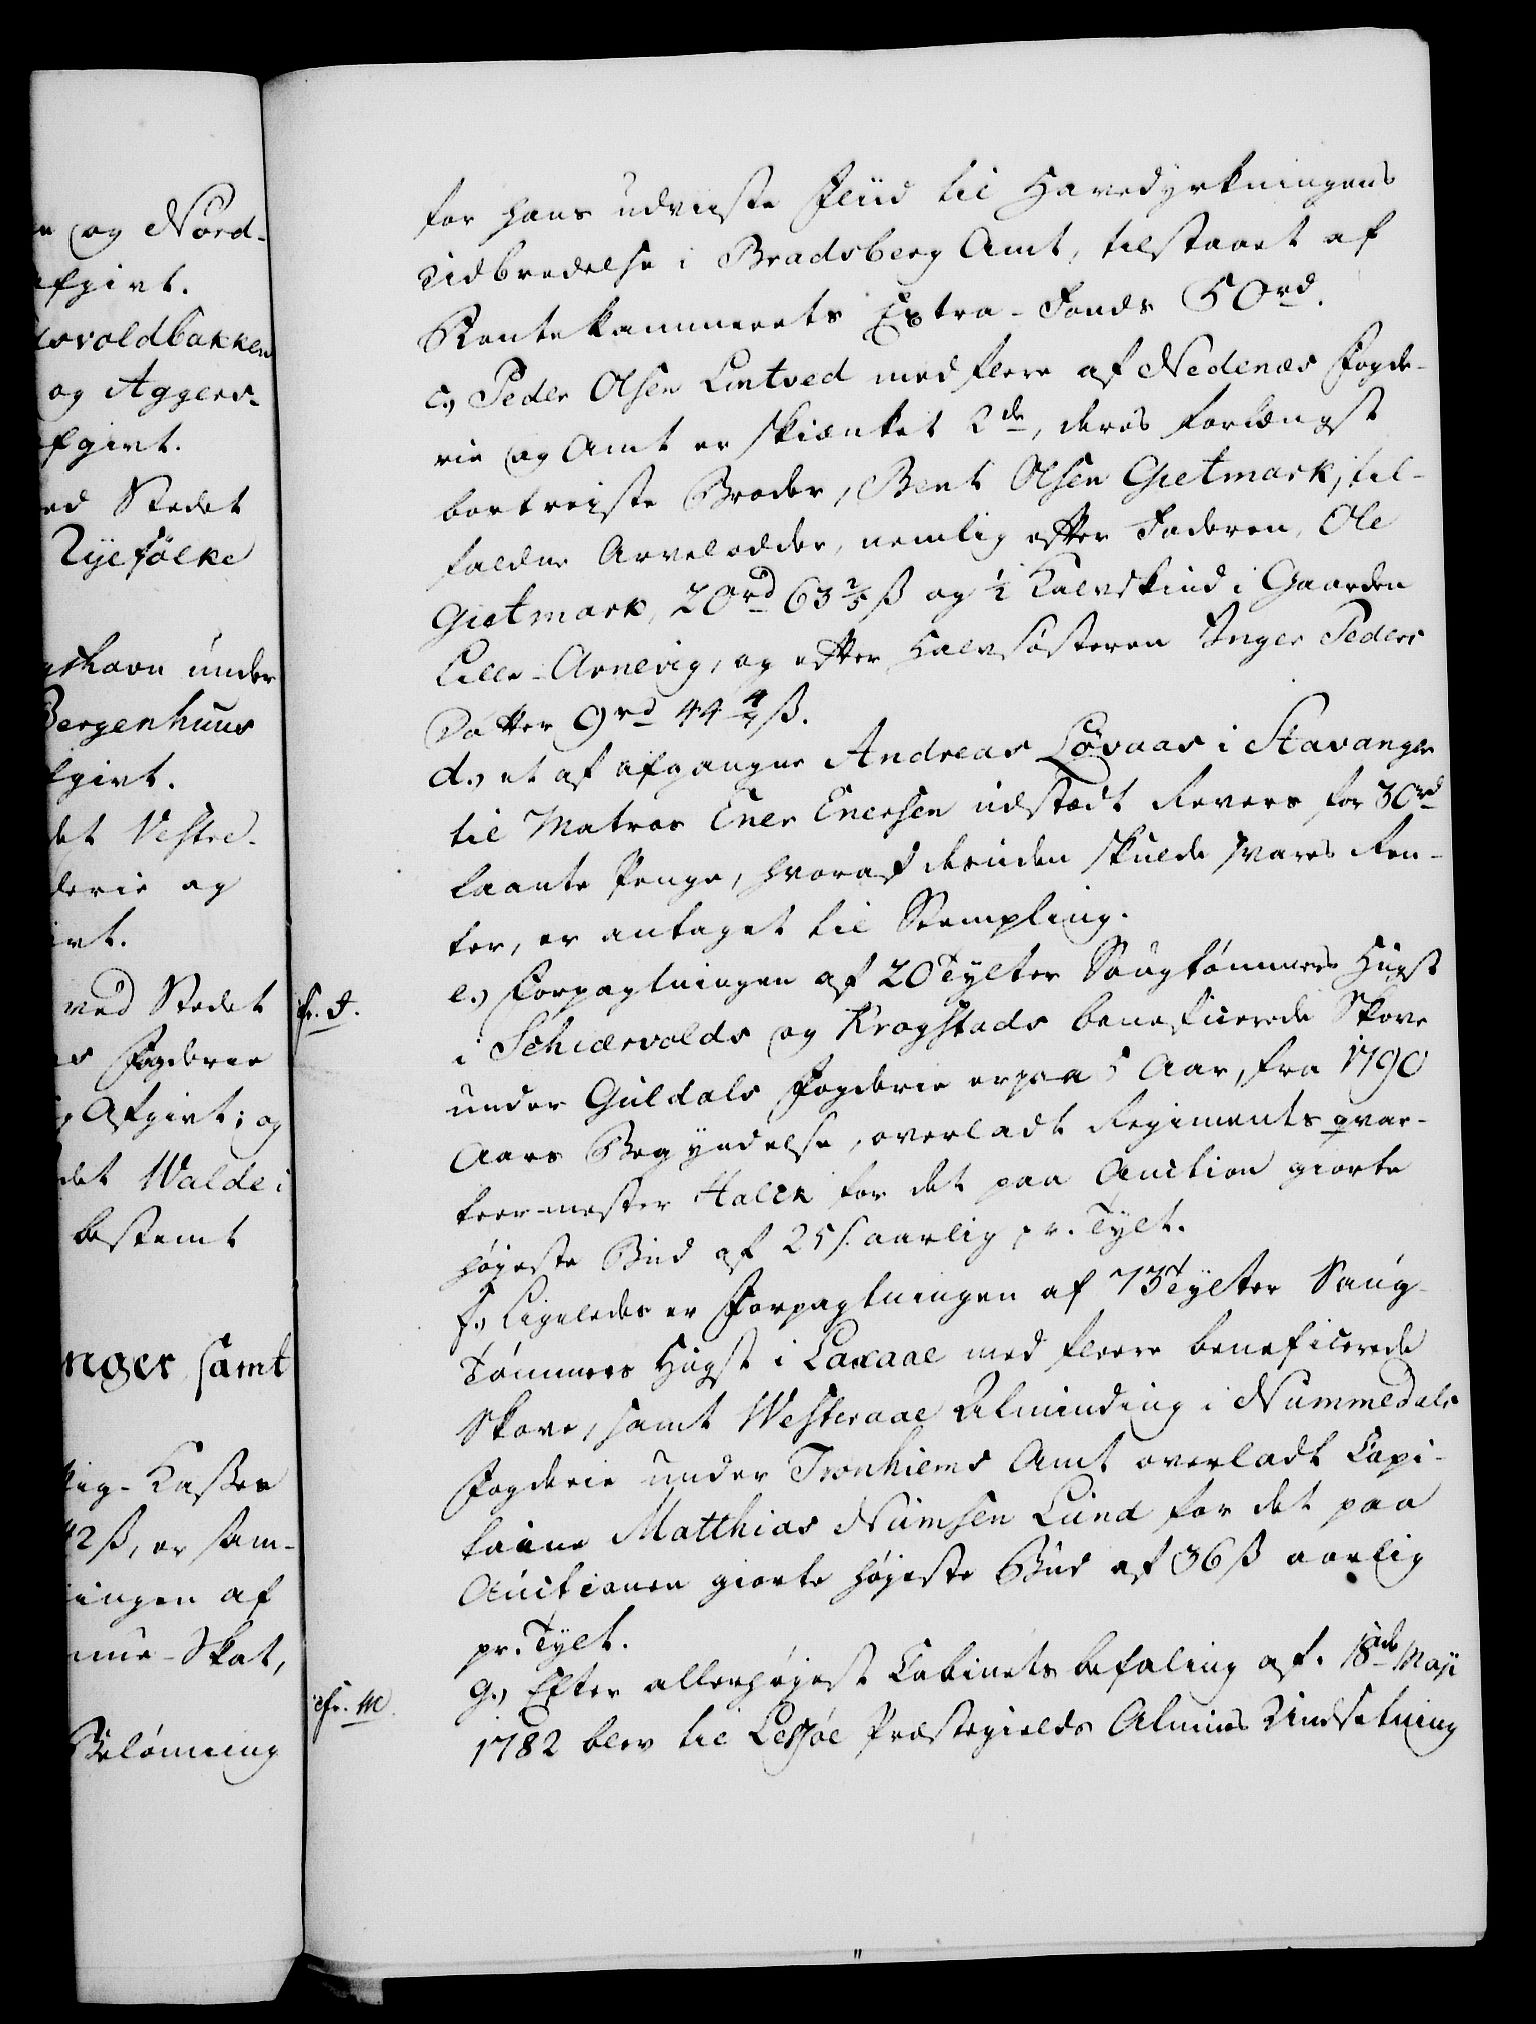 e og Nord-
afgivt.
orvoldbakken
og Aggers-
fgivt.
ed Stedet
Ryefölke
gshavn under
Bergenhuus
fgivt.
det Vestre-
derie og
ivt.
ved Stedet
es Fogderie
g Afgivt; og
det Walde i
bestemt
nger, samt
ig-Kassen
42 ß, er sam-
ingen af
nue-Skat,
Belönning
for hans udviiste Fliid til Havedyrkningens
Udbredelse i Bradsberg Amt, tilstaaet af
Rentekammerets Extra-Fonds 50 rd.
c.) Peder Olsen Lintved med flere af Nedenæs Fogde-
rie og Amt er skiænket 2de, deres forlængst
bortreiste Broder, Bent Olsen Gietmark, til-
faldne Arvelodder, nemlig efter Faderen, Ole
Gietmark, 20 rd 63 2/5 ß og 1/2 Kalvskind i Gaarden
Lille-Arnevig, og efter Halvsösteren Inger Peders
Datter 9 rd 44 4/7 ß.
d.) et af afgangne Andreas Lövaas i Stavanger
til Matros Ener Enersen udstædt Revers for 30 rd
laante Penge, hvoraf desuden skulde svares Ren-
ter, er antaget til Stempling.
cfr. I.
e.) Forpagtningen af 20 Tylter Saugtömmers Hugst
i Schiærvolds og Krogstads beneficerede Skove
under Guldals Fogderie er paa 5 Aar, fra 1790
Aars Begyndelse, overladt Regimentsqvar-
teermester Halck for det paa Auction giorte
höjeste Bud af 25 ß. aarlig pr. Tylt.
f.) Ligeledes er Forpagtningen af 73 Tylter Saug-
Tömmers Hugst i Laxaae med fleere beneficerede
Skove, samt Westeraae Alminding i Nummedals
Fogderie under Tronhiems Amt overladt Capi-
taine Matthias Numsen Lund for det paa
Auctionen giorte höjeste Bud af 36 ß aarlig
pr. Tylt.
cfr. M.
g.) Efter allerhöjest Cabinets befaling af 18de Maji
1782 blev til Lessöe Præstegields Almues Undsetning